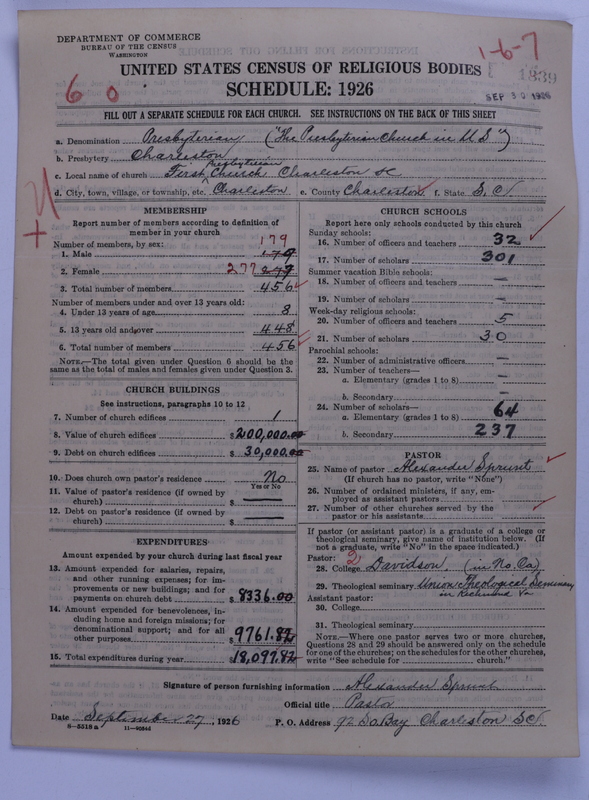 DEPARTMENT OF COMMERCE
BUREAU OF THE CENSUS
WASHINGTON
1-6-7
1839
SEP 30 1926
6 0
UNITED STATES CENSUS OF RELIGIOUS BODIES
SCHEDULE: 1926
FILL OUT A SEPARATE SCHEDULE FOR EACH CHURCH. SEE INSTRUCTIONS ON THE BACK OF THIS SHEET
a. Denomination Presbyterian ("The Presbyterian Church in U S")
b. Presbytery Charleston
c. Local name of church First Presbyterian Church, Charleston SC
d. City, town, village, or township, etc. Charleston e. County Charleston f. State S.C.
MEMBERSHIP
Report number of members according to definition of
member in your church
Number of members, by sex:
1. Male 179 179
2. Female 277 277
3. Total number of members 456
Number of members under and over 13 years old:
4. Under 13 years of age 8
5. 13 years old and over 448
6. Total number of members 456
NOTE.—The total given under Question 6 should be
same as the total of males and females given under Question 3.
CHURCH BUILDINGS
See instructions, paragraphs 10 to 12
7. Number of church edifices 1
8. Value of church edifices $200,000.00
9. Debt on church edifices $30,000.00
10. Does church own pastor's residence? No
Yes or No
11. Value of pastor's residence (if owned by
church) $ —
12. Debt on pastor's residence (if owned by
church) $ —
EXPENDITURES
Amount expended by your church during last fiscal year
13. Amount expended for salaries, repairs,
and other running expenses; for im-
provements or new buildings; and for
payments on church debt $8336.00
14. Amount expended for benevolences, in-
cluding home and foreign missions; for
denominational support; and for all
other purposes $9761.82
15. Total expenditures during year $18,097.82
CHURCH SCHOOLS
Report here only schools conducted by this church
Sunday schools:
16. Number of officers and teachers 32
17. Number of scholars 301
Summer vacation Bible schools:
18. Number of officers and teachers —
19. Number of scholars —
Week-day religious schools:
20. Number of officers and teachers 5
21. Number of scholars 30
Parochial schools:
22. Number of administrative officers —
23. Number of teachers—
a. Elementary (grades 1 to 8) —
b. Secondary —
24. Number of scholars—
a. Elementary (grades 1 to 8) 64
b. Secondary 237
PASTOR
25. Name of pastor Alexander Sprunt
(If church has no pastor, write "None")
26. Number of ordained ministers, if any, em-
ployed as assistant pastors
27. Number of other churches served by the
pastor or his assistants
If pastor (or assistant pastor) is a graduate of a college or
theological seminary, give name of institution below. (If
not a graduate, write "No" in the space indicated.)
Pastor: 2
28. College Davidson, (in No. Ca)
29. Theological seminary Union Theological Seminary
in Richmond Va
Assistant pastor:
30. College
31. Theological seminary
NOTE.—Where one pastor serves two or more churches,
Questions 28 and 29 should be answered only on the schedule
for one of the churches; on the schedules for the other churches,
write "See schedule for church."
Signature of person furnishing information Alexander Sprunt
Official title Pastor
Date September 27, 1926 P. O. Address 92 So Bay Charleston SC.
8-5518 a 11-90246